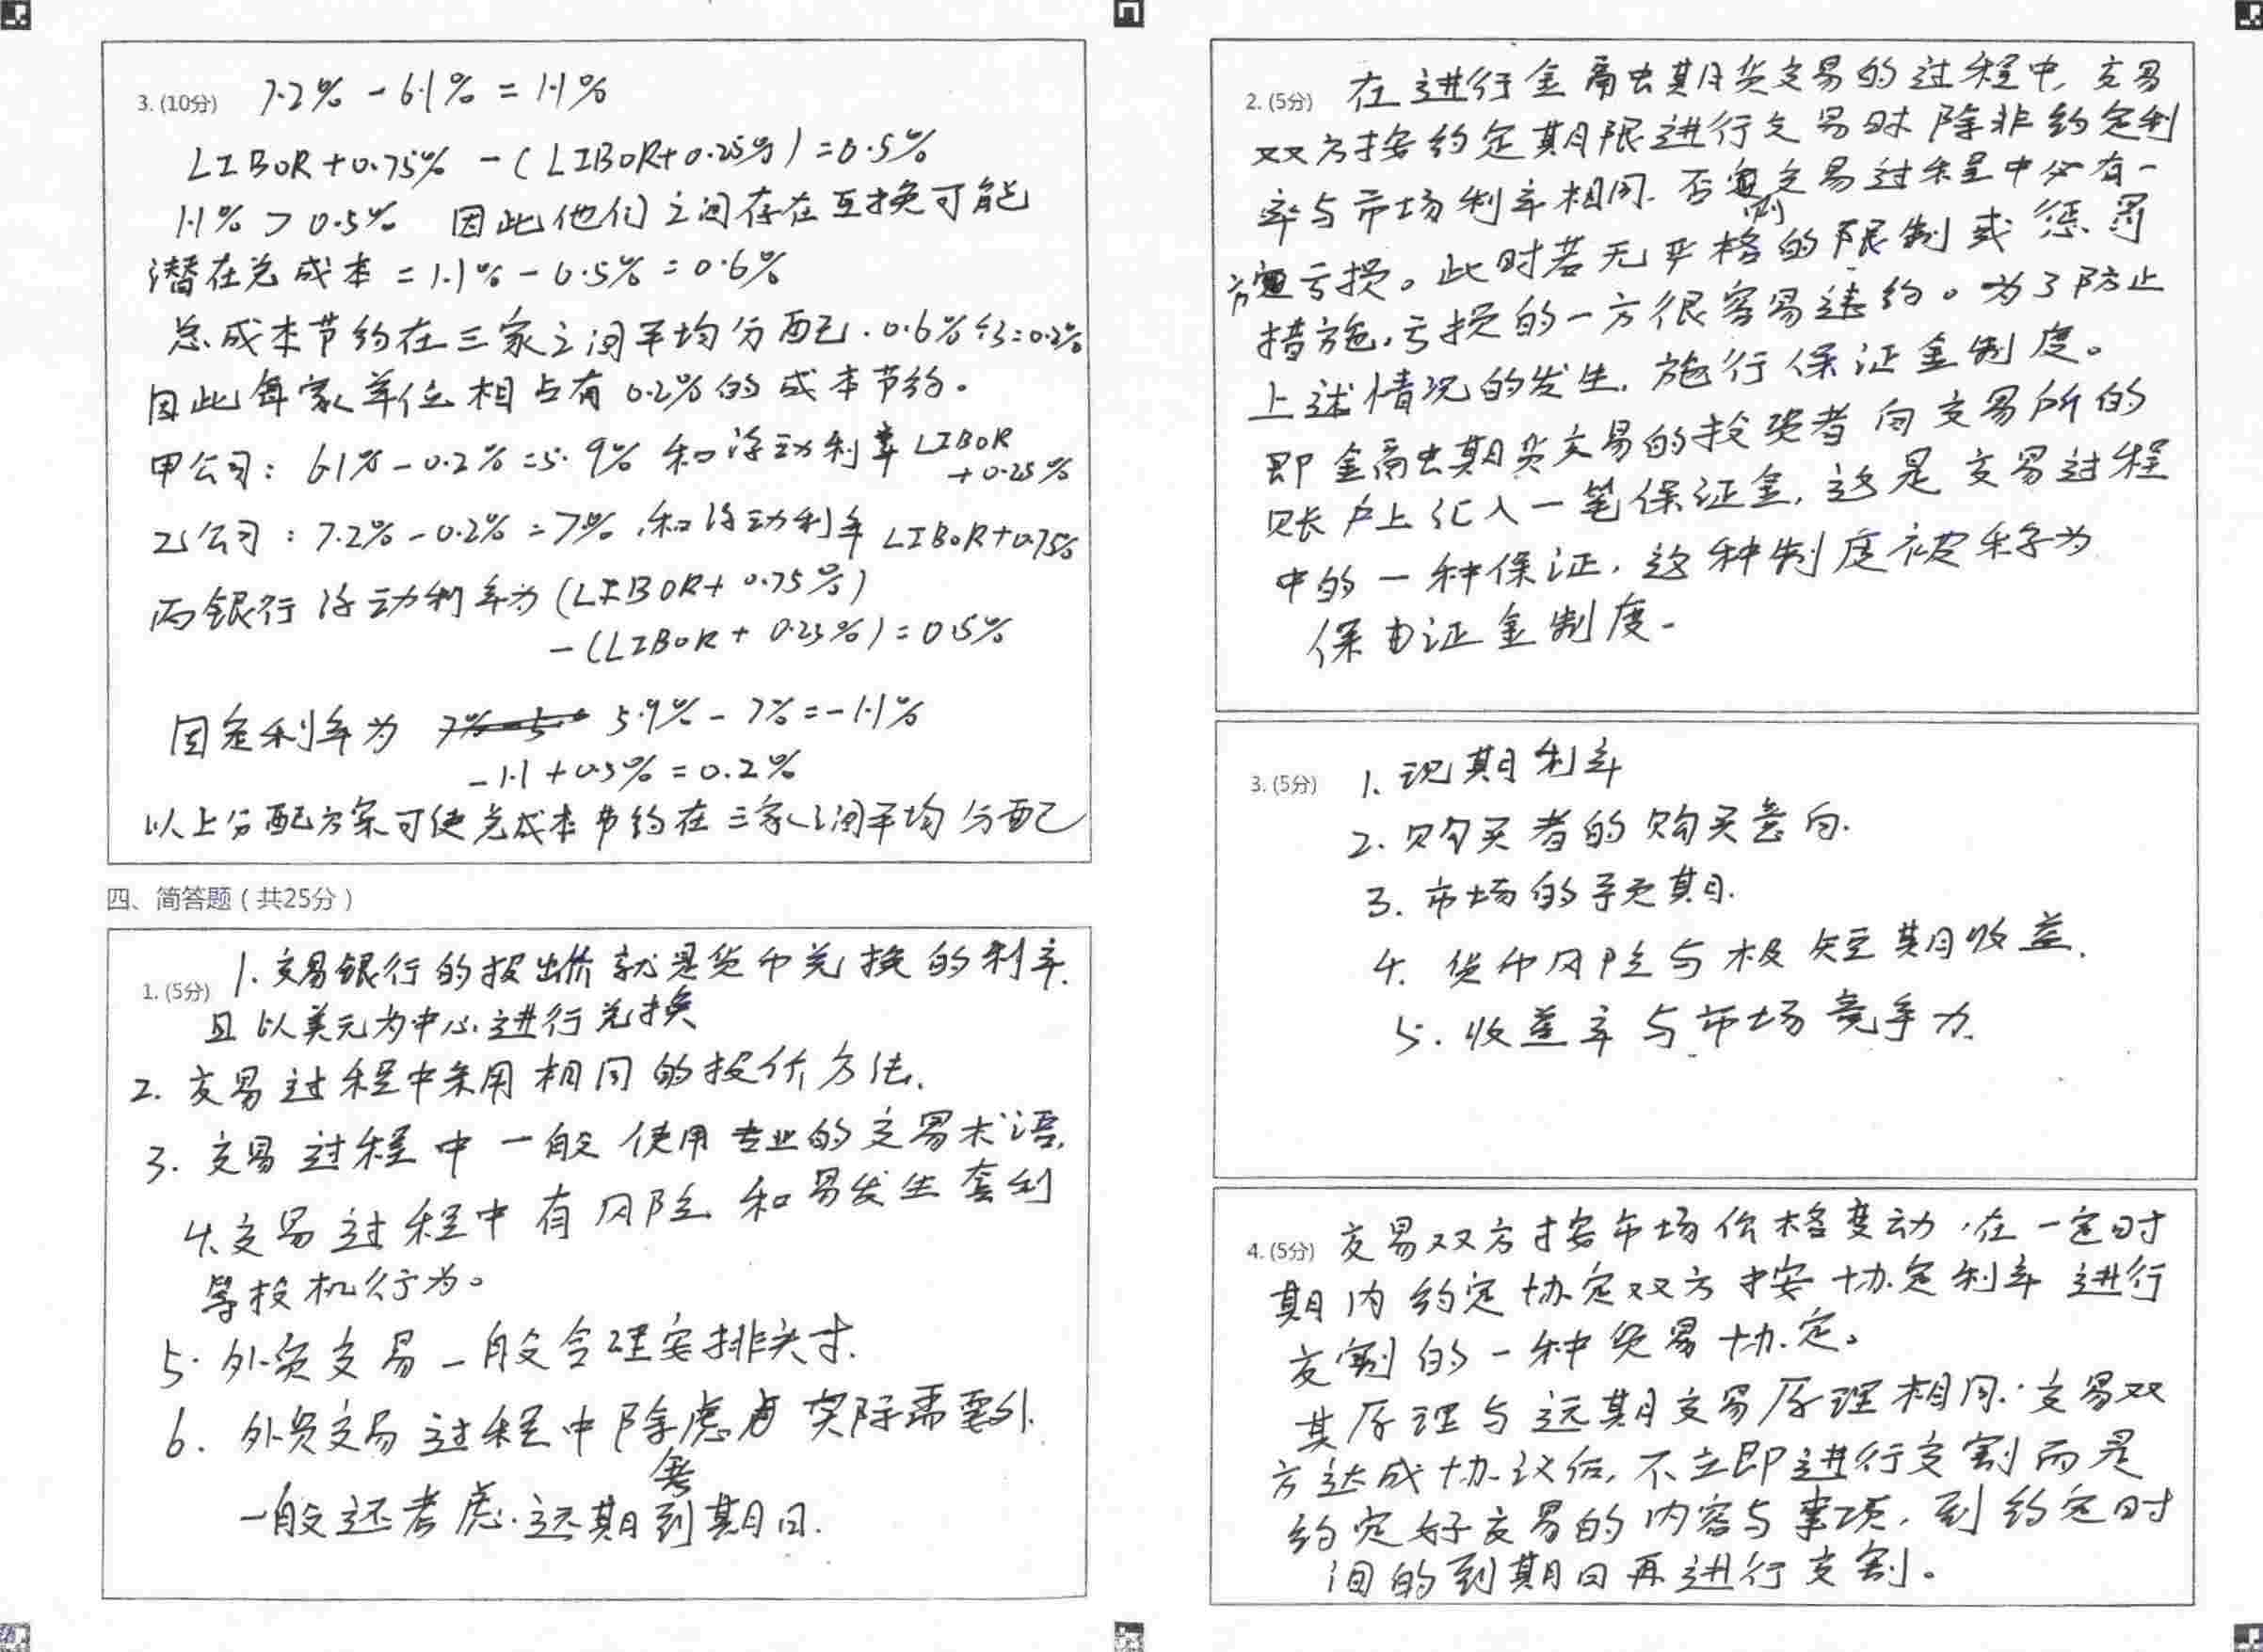 3. (10分) 7.2% - 6.1% = 1.1%
LIBOR + 0.75% - (LIBOR + 0.25%) = 0.5%
1.1% > 0.5% 因此他们之间存在互换可能
潜在总成本 = 1.1% - 0.5% = 0.6%
总成本节约在三家之间平均分配. 0.6% ÷ 3 = 0.2%
因此每家单位相占有 0.2% 的成本节约。
甲公司: 6.1% - 0.2% = 5.9% 和浮动利率 LIBOR + 0.25%
乙公司: 7.2% - 0.2% = 7%, 和浮动利率 LIBOR + 0.75%
丙银行浮动利率为 (LIBOR + 0.75%)
- (LIBOR + 0.25%) = 0.5%
固定利率为 5.9% - 7% = -1.1%
-1.1 + 0.5% = 0.2%
以上分配方案可使总成本节约在三家之间平均分配
四、简答题 (共25分)
1. (5分) 1. 交易银行的报出价就是货币兑换的利率.
且以美元为中心进行兑换
2. 交易过程中采用相同的报价方法.
3. 交易过程中一般使用专业的交易术语.
4. 交易过程中有风险和易发生套利
等投机行为。
5. 外贸交易一般合理安排头寸.
6. 外贸交易过程中除考虑实际需要外.
一般还考虑. 远期到期日.
2. (5分) 在进行金融期货交易的过程中, 交易
双方按约定期限进行交易时除非约定利
率与市场利率相同. 否则交易过程中必有一
方亏损。此时若无严格的限制或惩罚
措施, 亏损的一方很容易违约。为了防止
上述情况的发生. 施行保证金制度。
即金融期货交易的投资者向交易所的
账户上汇入一笔保证金, 这是交易过程
中的一种保证, 这种制度被称为
保证金制度.
3. (5分) 1. 现期利率
2. 购买者的购买意向.
3. 市场的预期.
4. 货币风险与极短期收益.
5. 收益率与市场竞争力.
4. (5分) 交易双方按市场价格变动, 在一定时
期内约定协定双方按协定利率进行
交割的一种贸易协定。
其原理与远期交易原理相同: 交易双
方达成协议后, 不立即进行交割而是
约定好交易的内容与事项, 到约定时
间的到期日再进行交割。